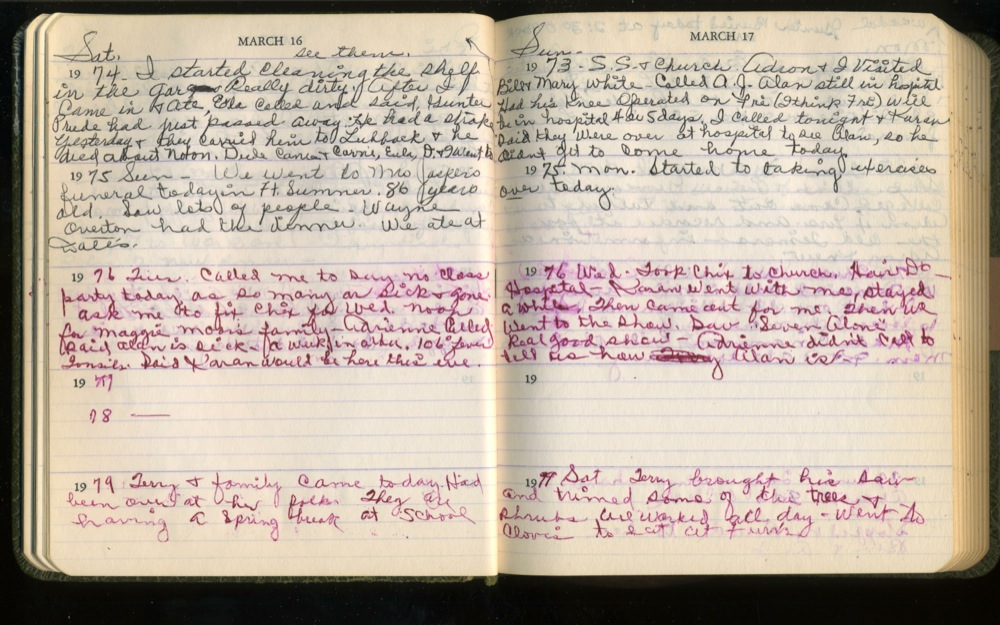 MARCH 16
Sat. see them.
1974. I started cleaning the shelf
in the garage Really dirty. After I
Came in & Ate, Eula called and said, Hunter
Prude had just passed away. He had a stroke
Yesterday & they carried him to Lubbock & he
died about noon. Dude Came & Carrie, Eula, D. & I went to
1975 Sun - We went to Mrs Jaspers
funeral today in Ft. Sumner. 86 years
old. Saw lots of people. Wayne
Overton had the dinner. We ate at
1976 Tues. Called me to say no class
party today as so many are sick & gone.
ask me to fix chix for Wed. noon
for Maggie Moon's family - Adrienne Called
said Alan is sick - 106 fever
Tonsils. Said Karan would be here this eve.
1977
78 —
1979 Terry & family came today. Had
been over at her folks. They are
having a Spring break at School
MARCH 17
Sun-
1973 - S.S. & Church. Adson & I Visited
Bill & Mary White. Called A.J. Alan still in hospital
Had his knee Operated on Fri (I think Fri) Will
be in hospital 4 or 5 days, I called tonight & Karen
said they were over at hospital to see Alan, so he
didnt get to come home today.
1975. Mon. Started to taking exercises
over today.
1976 Wed. Took Chix to Church. Hair Do-
Hospital - Karan went with me, stayed
a while. Then came out for me. Then we
Went to the show. Saw "Seven Alone"
Real good show - Adrienne didn't call to
tell us how Alan is.
19
1979 Sat Terry brought his saw
and trimed some of the trees &
shrubs. We worked all day - Went to
Clovis to eat at Furrs